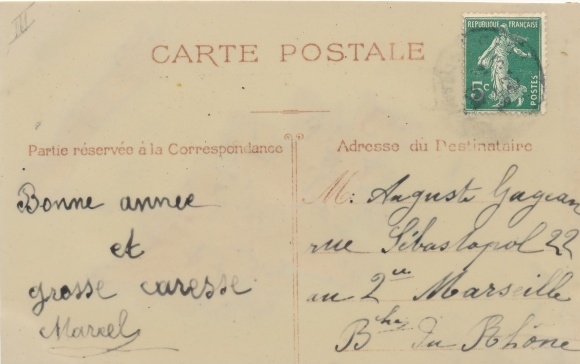 III
CARTE POSTALE
REPUBLIQUE FRANÇAISE
5c
POSTES
Partie réservée à la Correspondance
Bonne année
et
grosse caresse
Marcel
Adresse du Destinataire
M. Auguste Gagean
rue Sébastopol 22
au 2e Marseille
Bches du Rhône